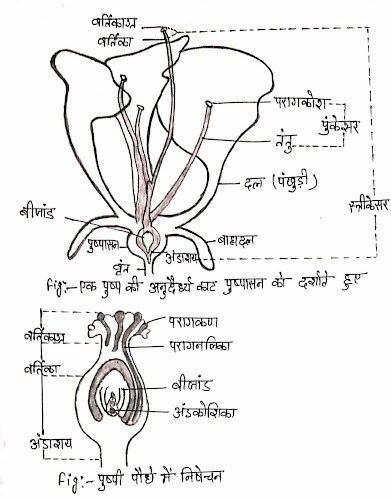 वर्तिकाग्र
वर्तिका
परागकोश
पुंकेसर
तंतु
दल (पंखुड़ी)
स्त्रीकेसर
बीजांड
पुष्पासन
बाह्यदल
अंडाशय
वृंत
fig:- एक पुष्प की अनुदैर्ध्य काट पुष्पासन को दर्शाते हुए
परागकण
वर्तिकाग्र
परागनलिका
वर्तिका
बीजांड
अंडकोशिका
अंडाशय
fig:- पुष्पी पौधे में निषेचन